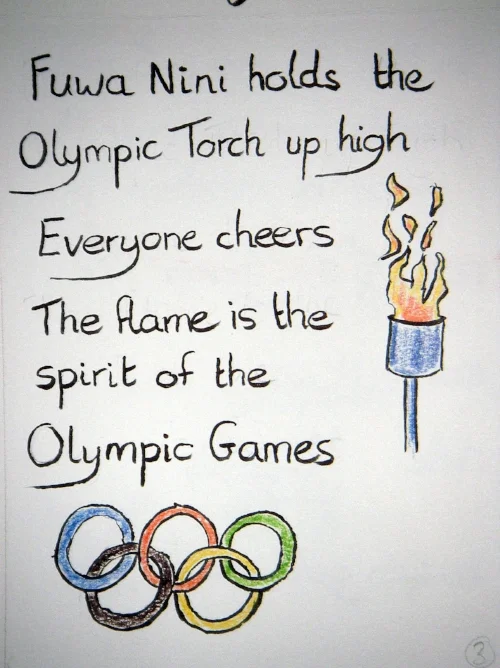 Fuwa Nini holds the
Olympic Torch up high
Everyone cheers
The flame is the
spirit of the
Olympic Games
3